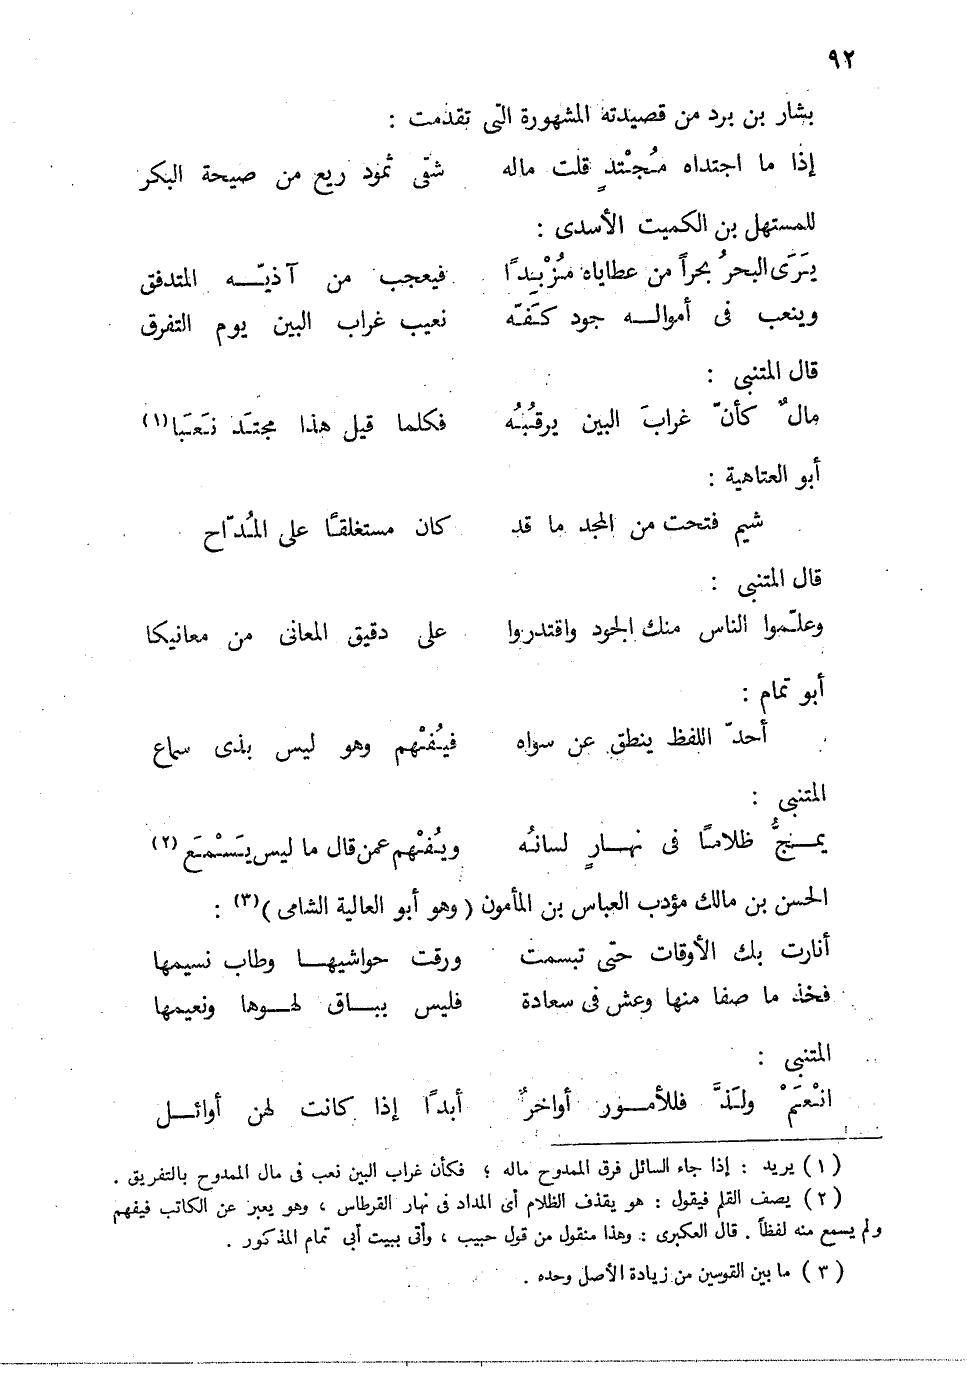 ٩٢
بشار بن برد من قصيدته المشهورة التى تقدمت :
إذا ما اجتداه مُجْتدٍ قلت ماله شقى ثمود ريع من صيحة البكر
للمستهل بن الكميت الأسدى :
يَرَى البحرُ بحراً من عطاياه مُزْبِدًا فيعجب من آذيّه المتدفق
وينعب فى أمواله جود كَفّه نعيب غراب البين يوم التفرق
قال المتنبى :
مالٌ كأنّ غرابَ البين يرقُبُه فكلما قيل هذا مجتَد نَعَبَا (١)
أبو العتاهية :
شيم فتحت من المجد ما قد كان مستغلقًا على المُدّاح
قال المتنبى :
وعلّموا الناس منك الجود واقتدروا على دقيق المعانى من معانيكا
أبو تمام :
أحدّ اللفظ ينطق عن سواه فيُفْهم وهو ليس بذى سماع
المتنبى :
يمجُّ ظلامًا فى نهارٍ لسانُه ويُفْهم عمن قال ما ليس يَسْمَع (٢)
الحسن بن مالك مؤدب العباس بن المأمون ( وهو أبو العالية الشامى ) (٣) :
أنارت بك الأوقات حتى تبسمت ورقت حواشيها وطاب نسيمها
فخذ ما صفا منها وعش فى سعادة فليس بباق لهوها ونعيمها
المتنبى :
انْعَمْ ولَذَّ فللأمور أواخرٌ أبدًا إذا كانت لهن أوائل
( ١ ) يريد : إذا جاء السائل فرق الممدوح ماله ؛ فكأن غراب البين نعب فى مال الممدوح بالتفريق .
( ٢ ) يصف القلم فيقول : هو يقذف الظلام أى المداد فى نهار القرطاس ، وهو يعبر عن الكاتب فيفهم
ولم يسمع منه لفظاً . قال العكبرى : وهذا منقول من قول حبيب ، وأتى ببيت أبى تمام المذكور .
( ٣ ) ما بين القوسين من زيادة الأصل وحده .